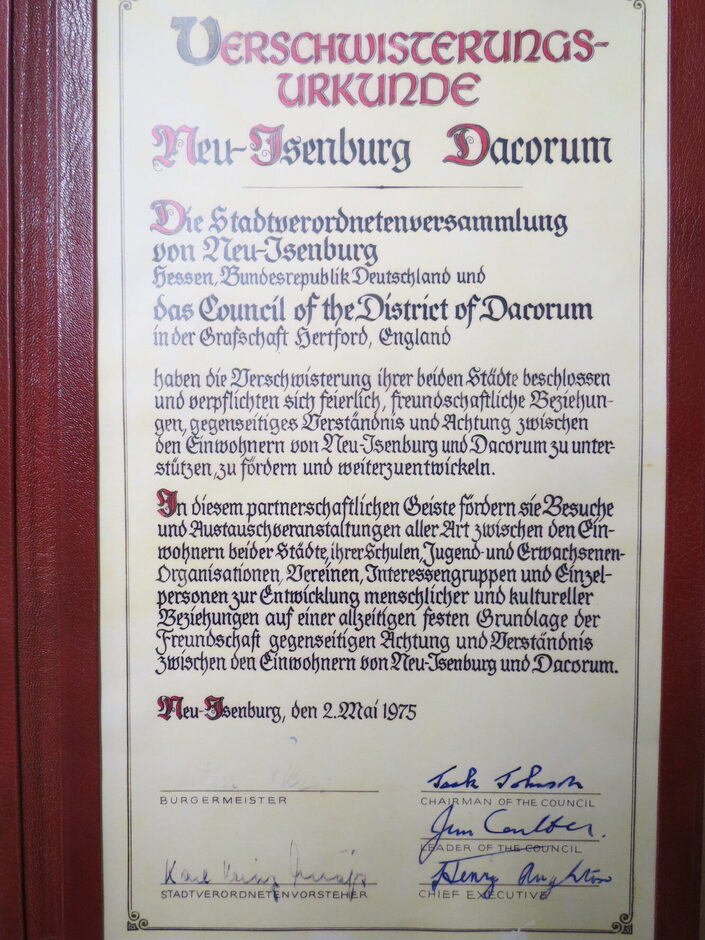 VERSCHWISTERUNGS-
URKUNDE
Neu-Isenburg Dacorum
Die Stadtverordnetenversammlung
von Neu-Isenburg
Hessen, Bundesrepublik Deutschland und
das Council of the District of Dacorum
in der Grafschaft Hertford, England
haben die Verschwisterung ihrer beiden Städte beschlossen
und verpflichten sich feierlich, freundschaftliche Beziehun-
gen, gegenseitiges Verständnis und Achtung zwischen
den Einwohnern von Neu-Isenburg und Dacorum zu unter-
stützen, zu fördern und weiterzuentwickeln.
In diesem partnerschaftlichen Geiste fördern sie Besuche
und Austauschveranstaltungen aller Art zwischen den Ein-
wohnern beider Städte, ihrer Schulen, Jugend- und Erwachsenen-
Organisationen, Vereinen, Interessengruppen und Einzel-
personen zur Entwicklung menschlicher und kultureller
Beziehungen auf einer allzeitigen festen Grundlage der
Freundschaft gegenseitigen Achtung und Verständnis
zwischen den Einwohnern von Neu-Isenburg und Dacorum.
Neu-Isenburg, den 2. Mai 1975
Jack Johnson
BÜRGERMEISTER CHAIRMAN OF THE COUNCIL
Jim Coulter.
LEADER OF THE COUNCIL
Karl Heinz Henry
STADTVERORDNETENVORSTEHER CHIEF EXECUTIVE